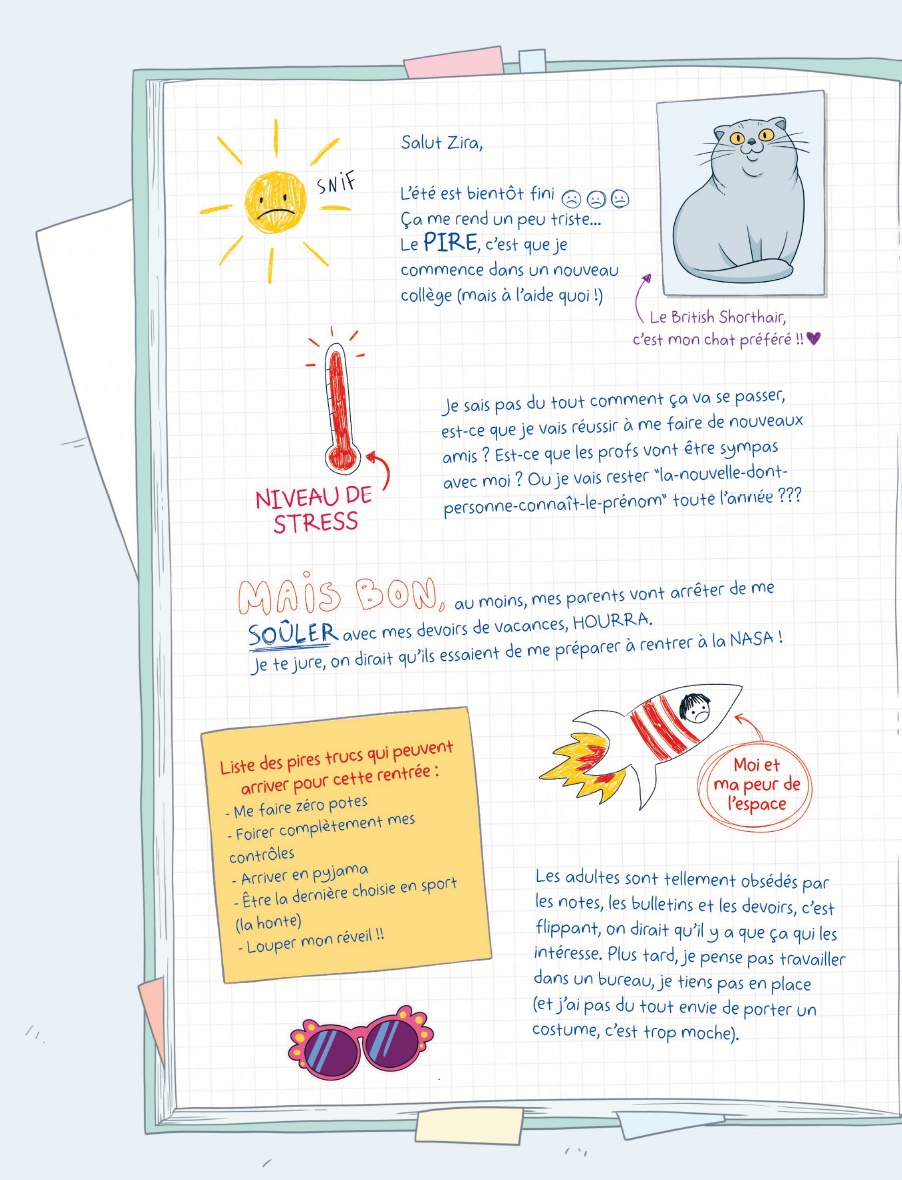 SNIF
Salut Zira,
L'été est bientôt fini
Ça me rend un peu triste...
Le PIRE, c'est que je
commence dans un nouveau
collège (mais à l'aide quoi !)
Le British Shorthair,
c'est mon chat préféré !!
NIVEAU DE
STRESS
Je sais pas du tout comment ça va se passer,
est-ce que je vais réussir à me faire de nouveaux
amis ? Est-ce que les profs vont être sympas
avec moi ? Ou je vais rester "la-nouvelle-dont-
personne-connaît-le-prénom" toute l'année ???
MAIS BON, au moins, mes parents vont arrêter de me
SOÛLER avec mes devoirs de vacances, HOURRA.
Je te jure, on dirait qu'ils essaient de me préparer à rentrer à la NASA !
Liste des pires trucs qui peuvent
arriver pour cette rentrée :
- Me faire zéro potes
- Foirer complètement mes
contrôles
- Arriver en pyjama
- Être la dernière choisie en sport
(la honte)
- Louper mon réveil !!
Moi et
ma peur de
l'espace
Les adultes sont tellement obsédés par
les notes, les bulletins et les devoirs, c'est
flippant, on dirait qu'il y a que ça qui les
intéresse. Plus tard, je pense pas travailler
dans un bureau, je tiens pas en place
(et j'ai pas du tout envie de porter un
costume, c'est trop moche).